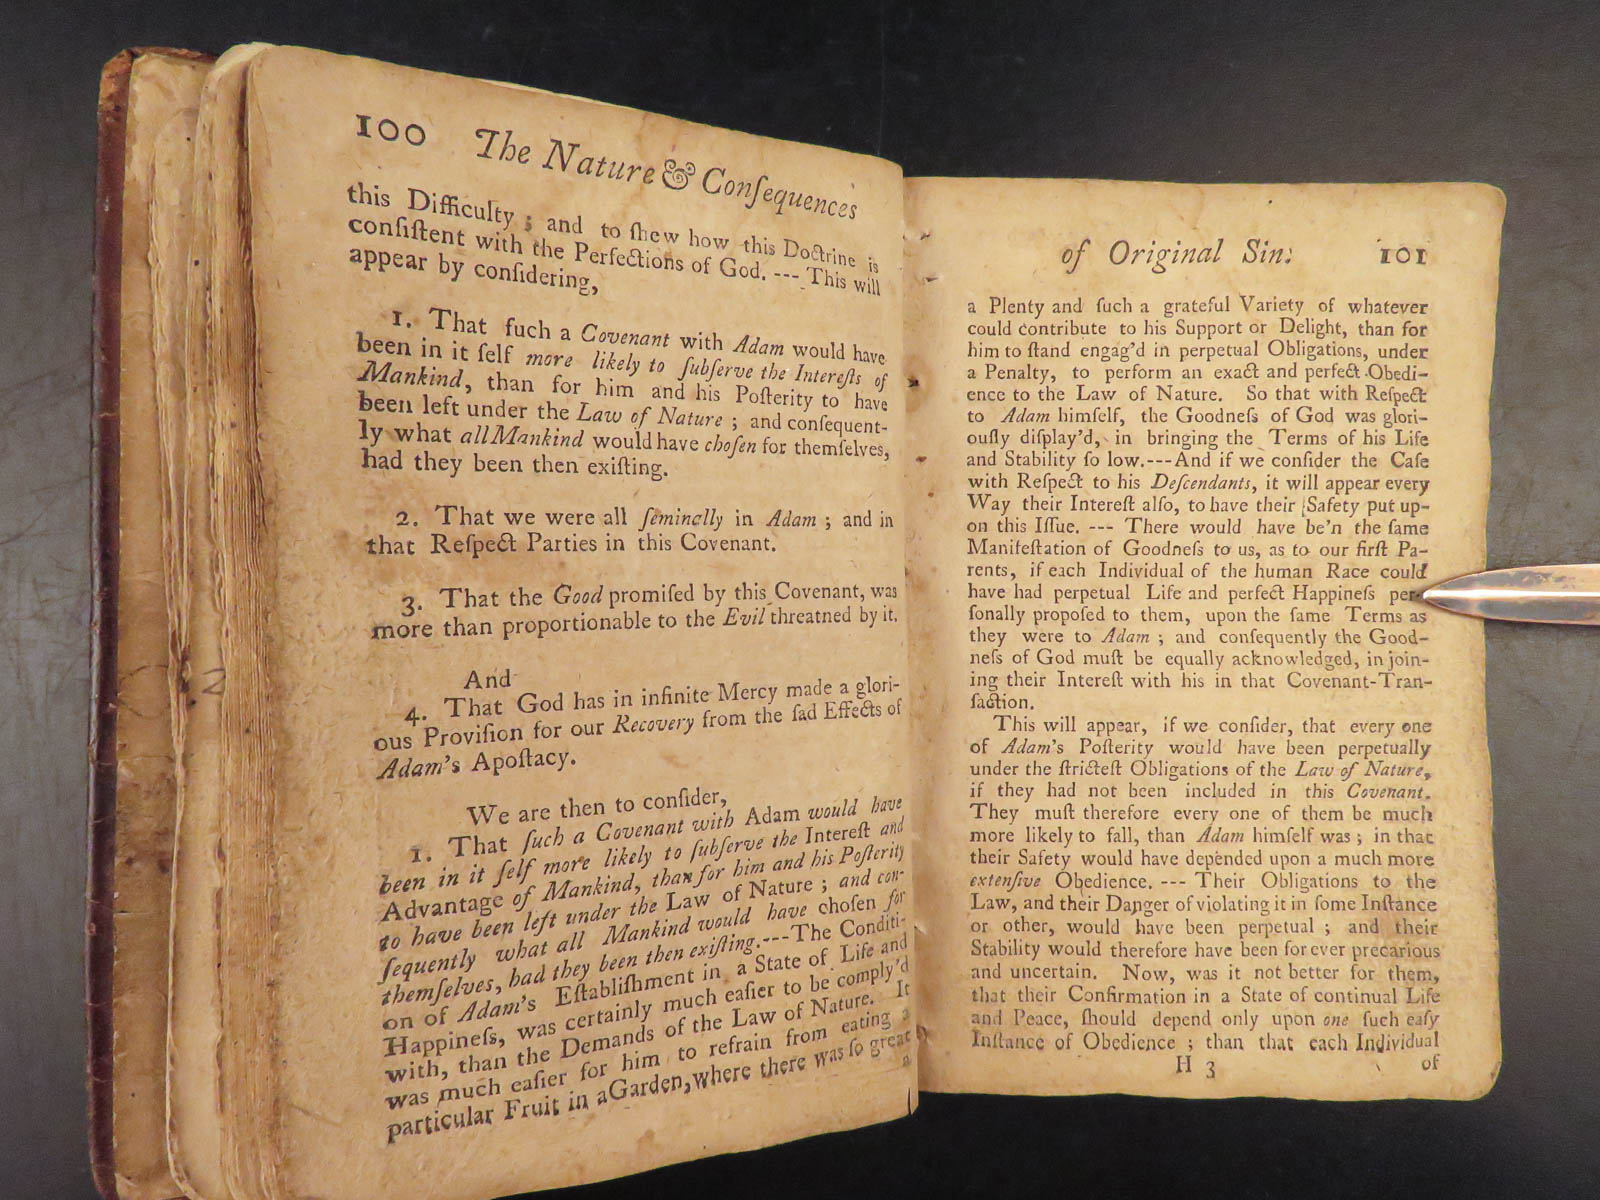 100 The Nature & Conſequences
this Difficulty ; and to ſhew how this Doctrine is
conſiſtent with the Perfections of God. --- This will
appear by conſidering,
1. That ſuch a Covenant with Adam would have
been in it ſelf more likely to ſubſerve the Intereſts of
Mankind, than for him and his Poſterity to have
been left under the Law of Nature ; and conſequent-
ly what all Mankind would have choſen for themſelves,
had they been then exiſting.
2. That we were all ſeminally in Adam ; and in
that Reſpect Parties in this Covenant.
3. That the Good promiſed by this Covenant, was
more than proportionable to the Evil threatned by it.
And
4. That God has in infinite Mercy made a glori-
ous Proviſion for our Recovery from the ſad Effects of
Adam's Apoſtacy.
We are then to conſider,
1. That ſuch a Covenant with Adam would have
been in it ſelf more likely to ſubſerve the Intereſt and
Advantage of Mankind, than for him and his Poſterity
to have been left under the Law of Nature ; and con-
ſequently what all Mankind would have choſen for
themſelves, had they been then exiſting.---The Conditi-
on of Adam's Eſtabliſhment in a State of Life and
Happineſs, was certainly much eaſier to be comply'd
with, than the Demands of the Law of Nature. It
was much eaſier for him to refrain from eating a
particular Fruit in a Garden, where there was ſo great
a
of Original Sin. 101
a Plenty and ſuch a grateful Variety of whatever
could contribute to his Support or Delight, than for
him to ſtand engag'd in perpetual Obligations, under
a Penalty, to perform an exact and perfect Obedi-
ence to the Law of Nature. So that with Reſpect
to Adam himſelf, the Goodneſs of God was glori-
ouſly diſplay'd, in bringing the Terms of his Life
and Stability ſo low.---And if we conſider the Caſe
with Reſpect to his Deſcendants, it will appear every
Way their Intereſt alſo, to have their Safety put up-
on this Iſſue. --- There would have be'n the ſame
Manifeſtation of Goodneſs to us, as to our firſt Pa-
rents, if each Individual of the human Race could
have had perpetual Life and perfect Happineſs per-
ſonally propoſed to them, upon the ſame Terms as
they were to Adam ; and conſequently the Good-
neſs of God muſt be equally acknowledged, in join-
ing their Intereſt with his in that Covenant-Tran-
ſaction.
This will appear, if we conſider, that every one
of Adam's Poſterity would have been perpetually
under the ſtricteſt Obligations of the Law of Nature,
if they had not been included in this Covenant.
They muſt therefore every one of them be much
more likely to fall, than Adam himſelf was ; in that
their Safety would have depended upon a much more
extenſive Obedience. --- Their Obligations to the
Law, and their Danger of violating it in ſome Inſtance
or other, would have been perpetual ; and their
Stability would therefore have been for ever precarious
and uncertain. Now, was it not better for them,
that their Confirmation in a State of continual Life
and Peace, ſhould depend only upon one ſuch eaſy
Inſtance of Obedience ; than that each Individual
H 3 of